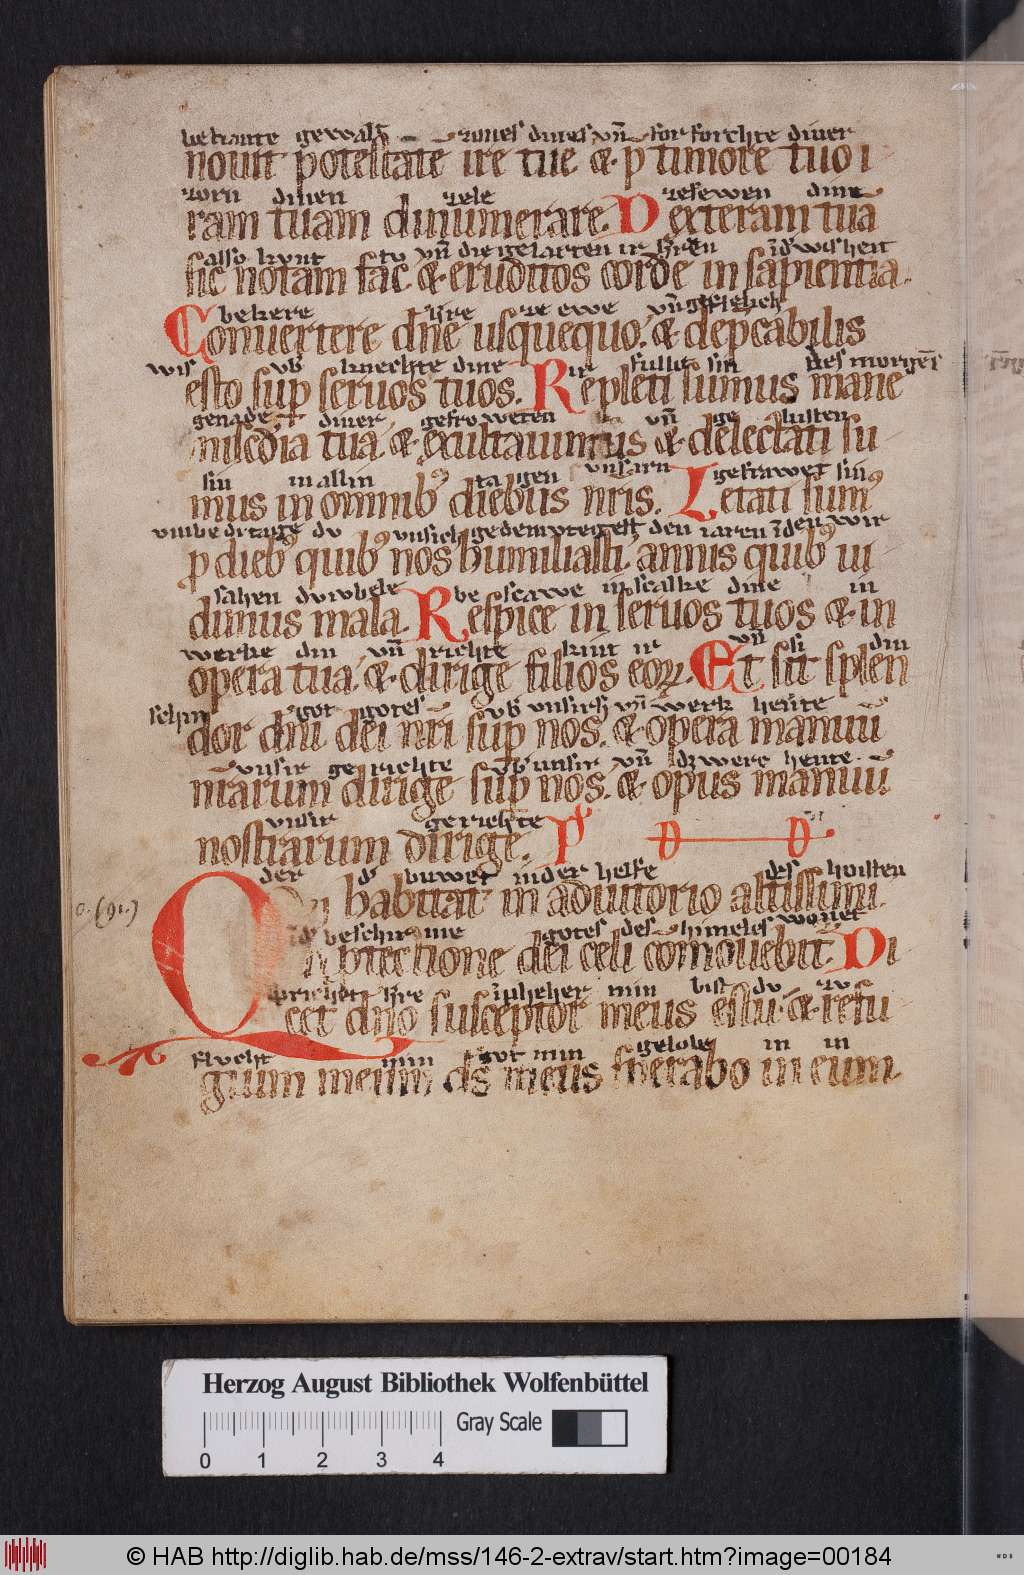 bekante gewalt zornes dines vn̄ for forchte diner
nouit potestatē ire tue & p timore tuo i
zorn dinen zele zesewen dine
ram tuam dinumerare. Dexteram tuā
also kunt tv vn̄ die gelarten ir h'zen īd' wisheit
sic notam fac & eruditos corde in sapientia.
bekere h're ze ewe vn̄
Conuertere dn̄e usquequo. & dep̄cabilis
wis vb' knechte dine Ir fullit sin des morgēs
esto sup seruos tuos. Repleti sumus mane
genade diner gefroweten vn̄ ge lusten
mis̄cdia tua. & exultauimus & delectati su
sin in allin tagen vnsarn gefrawet sin
mus in omnib' diebus nr̄is. Letati sum'
vmbe di tage dv vnsich gedemvtegest den iaren īden wir
p dieb' quib' nos humiliasti. annis quib' ui
sahen dv vbele be scawe in scalke dine in
dimus mala. Respice in seruos tuos & in
werke din vn̄ richte kint ir vn̄ si din
opera tua. & dirige filios eoꝝ. Et sit splen
schin got gotes vb' vnsich vn̄ werk hente
dor dn̄i dei nr̄i sup nos. & opera manuū
vnsir gerichte vb' unsir vn̄ dz werc hente.
nr̄arum dirige sup nos. & opus manuū
vnsir gerichte
nostrarum dirige. Ps D D
der d' buwet in der helfe des hoisten
Qui habitat in adiutorio altissimi.
0. (91.)
in d' beschirme gotes des himeles wonet
In p̄tectione dei celi comorabit'. Di
sprichet h're īpheher min bist dv zv
cet dn̄o susceptor meus es tu. & refu
flvcht min got min gelobe in in
gium meum ds̄ meus sperabo in eum
Herzog August Bibliothek Wolfenbüttel
Gray Scale
0 1 2 3 4
© HAB http://diglib.hab.de/mss/146-2-extrav/start.htm?image=00184